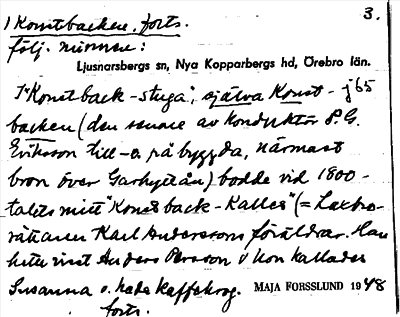 1 Konstbacken, forts. 3.
följ. minnen:
Ljusnarsbergs sn, Nya Kopparbergs hd, Örebro län.
I "Konstback-stuga", själva Konst- j 65
backen (den senare av konduktör P.G.
Eriksson till- o. på byggda, närmast
bron över Garhytteån) bodde vid 1800-
talets mitt "Konstback-Kalles" (= Laxbro-
rättaren Karl Anderssons föräldrar. Han
hette visst Anders Persson o hon kallades
Susanna o. hade kaffekrog. MAJA FORSSLUND 1948
forts.